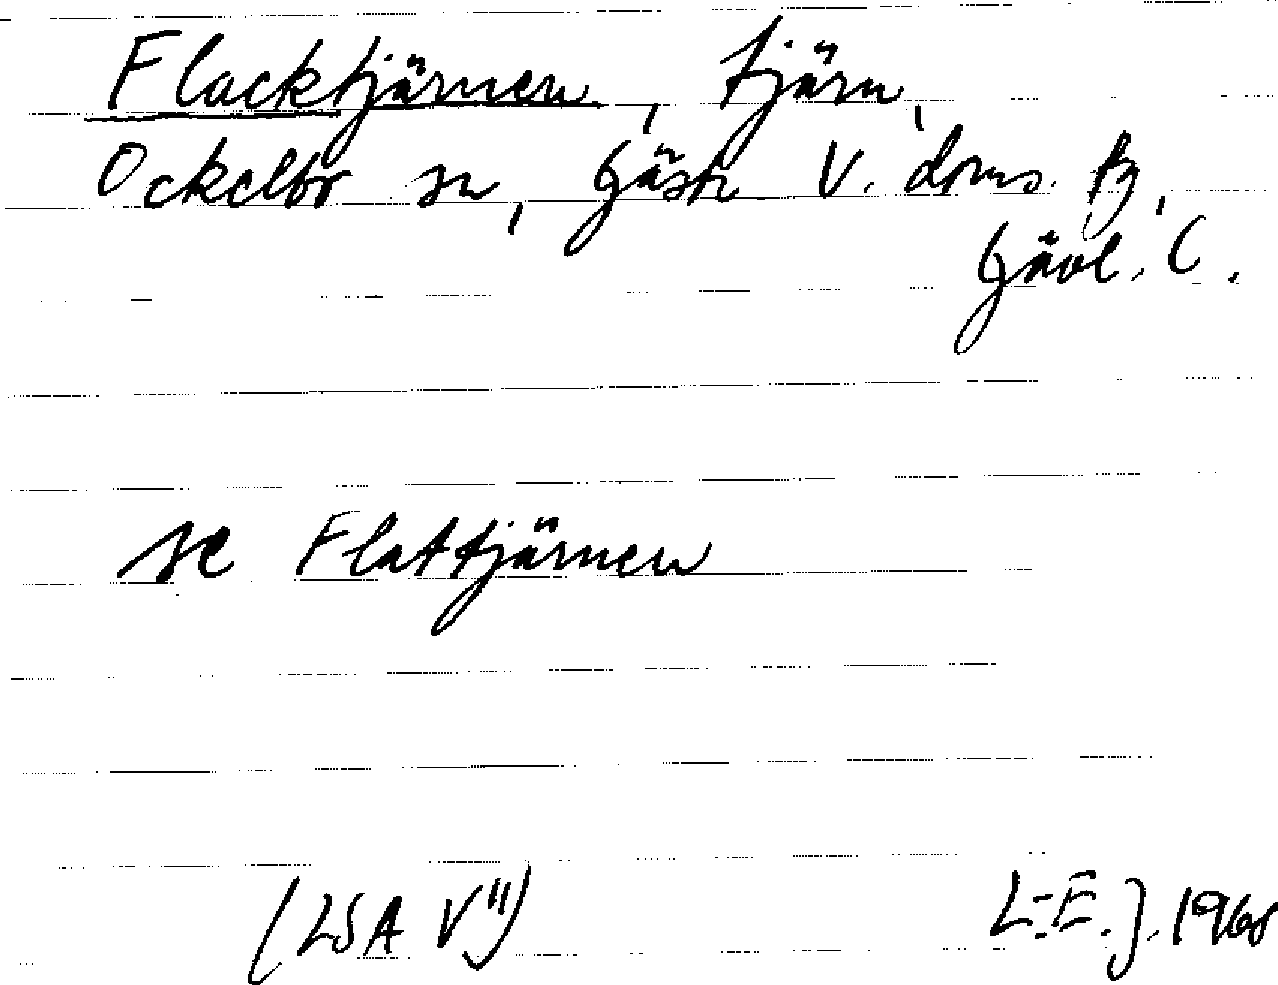 Flacktjärnen, tjärn,
Ockelbo sn, Gästr V. doms.
Gävl.
se Flattjärnen
(LSA V") L-E.J. 1968